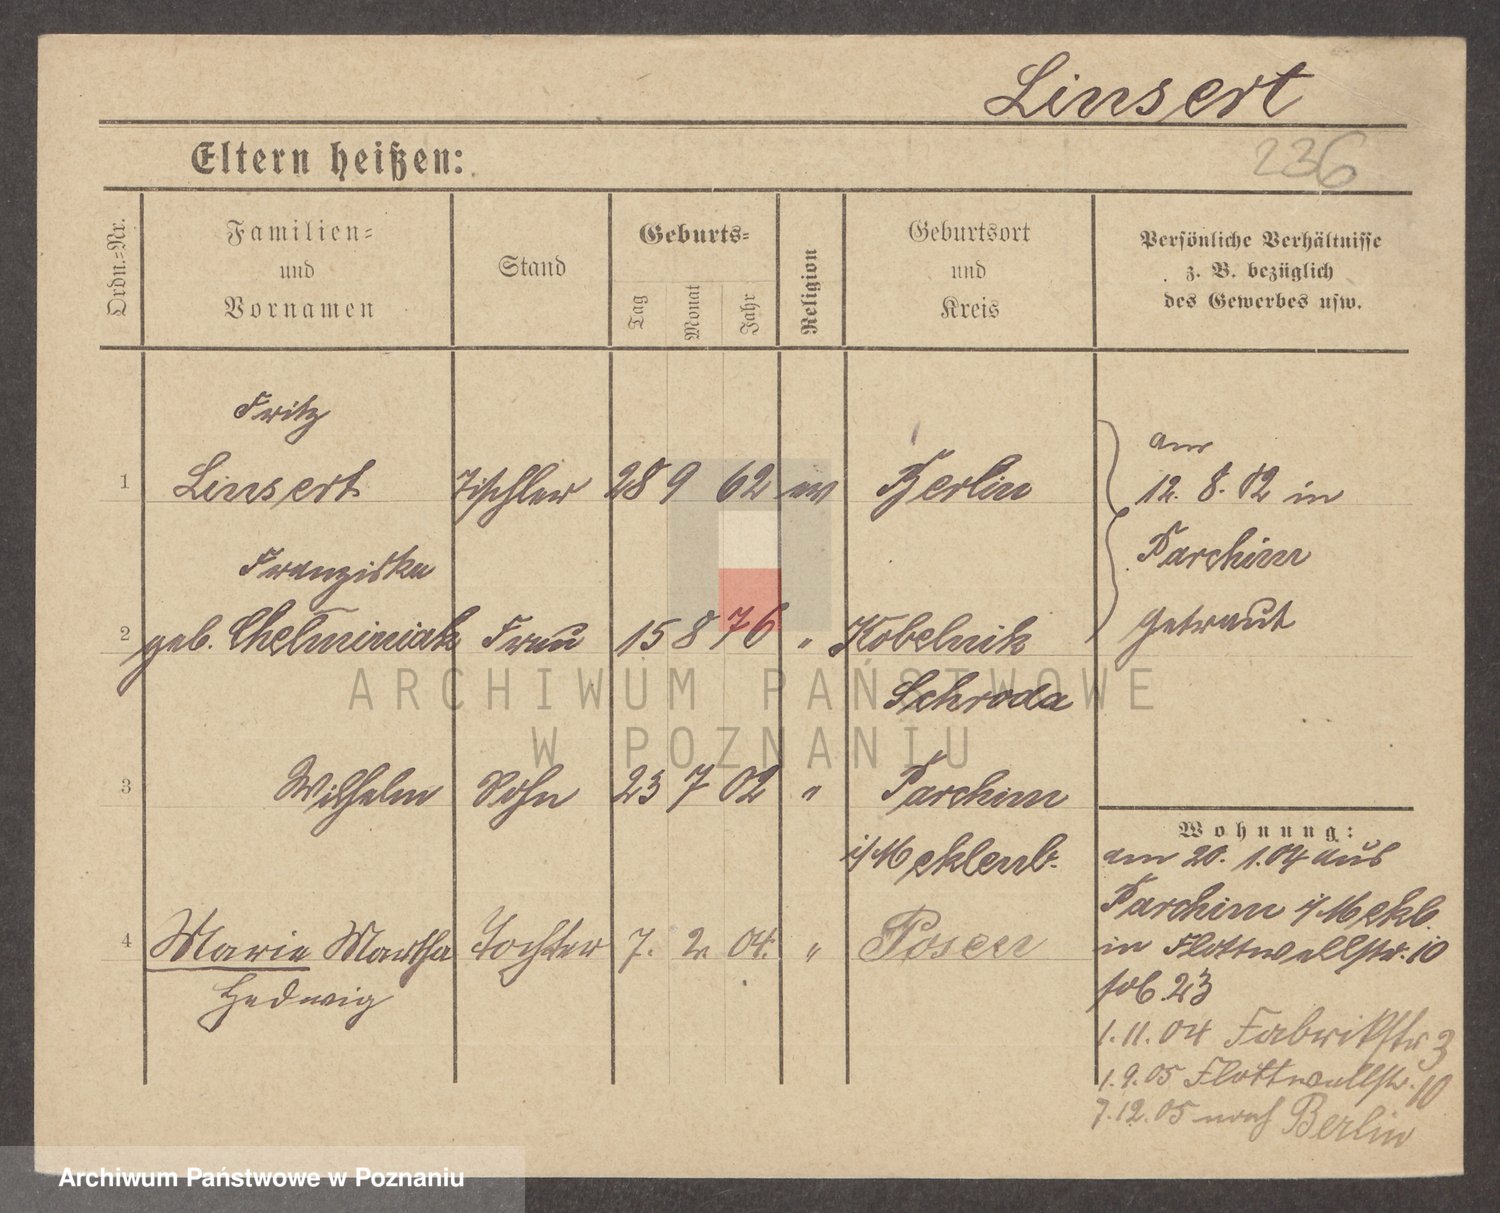 Linsert
Eltern heißen:
236
Ordn.-Nr.
Familien-
und
Vornamen
Stand
Geburts-
Tag
Monat
Jahr
Religion
Geburtsort
und
Kreis
Persönliche Verhältnisse
z. B. bezüglich
des Gewerbes usw.
Fritz
1 Linsert Tischler 28 9 62 ev Berlin
am
12. 8. 02 in
Parchim
getraut
Franziska
2 geb. Chelminiak Frau 15 8 76 " Kobelnik
Schroda
3 Wilhelm Sohn 23 7 02 " Parchim
i/Meklenb.
4 Marie Martha Tochter 7. 2. 04. " Posen
Hedwig
Wohnung:
am 20. 1. 04 aus
Parchim i/Mekb.
in Flottwellstr. 10
23
1. 11. 04 Fabrikstr 3
1. 9. 05 Flottwellstr. 10
7. 12. 05 nach Berlin
ARCHIWUM PAŃSTWOWE
W POZNANIU
Archiwum Państwowe w Poznaniu